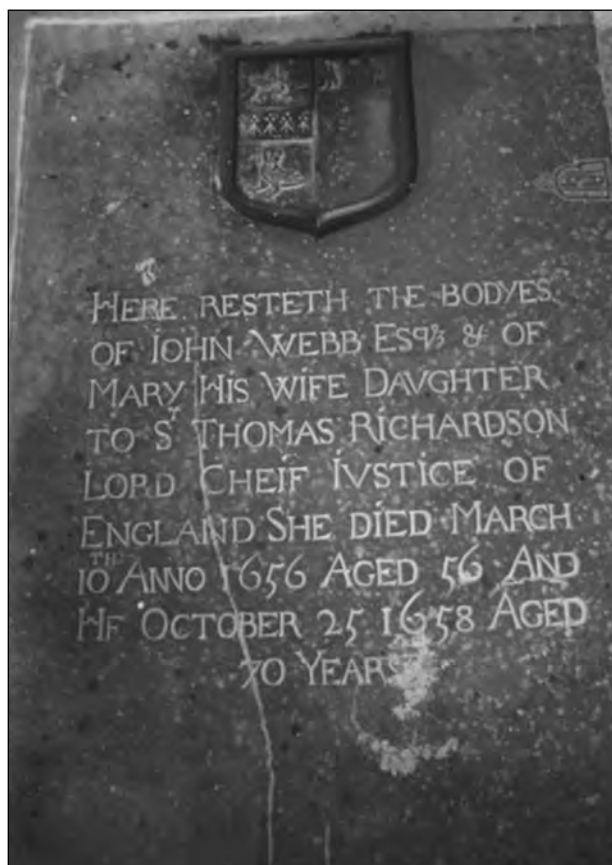 HERE RESTETH THE BODYES
OF IOHN WEBB Esqr & OF
MARY HIS WIFE DAVGHTER
TO Sr THOMAS RICHARDSON
LORD CHEIF IVSTICE OF
ENGLAND SHE DIED MARCH
10TH ANNO 1656 AGED 56 AND
HE OCTOBER 25 1658 AGED
70 YEARS